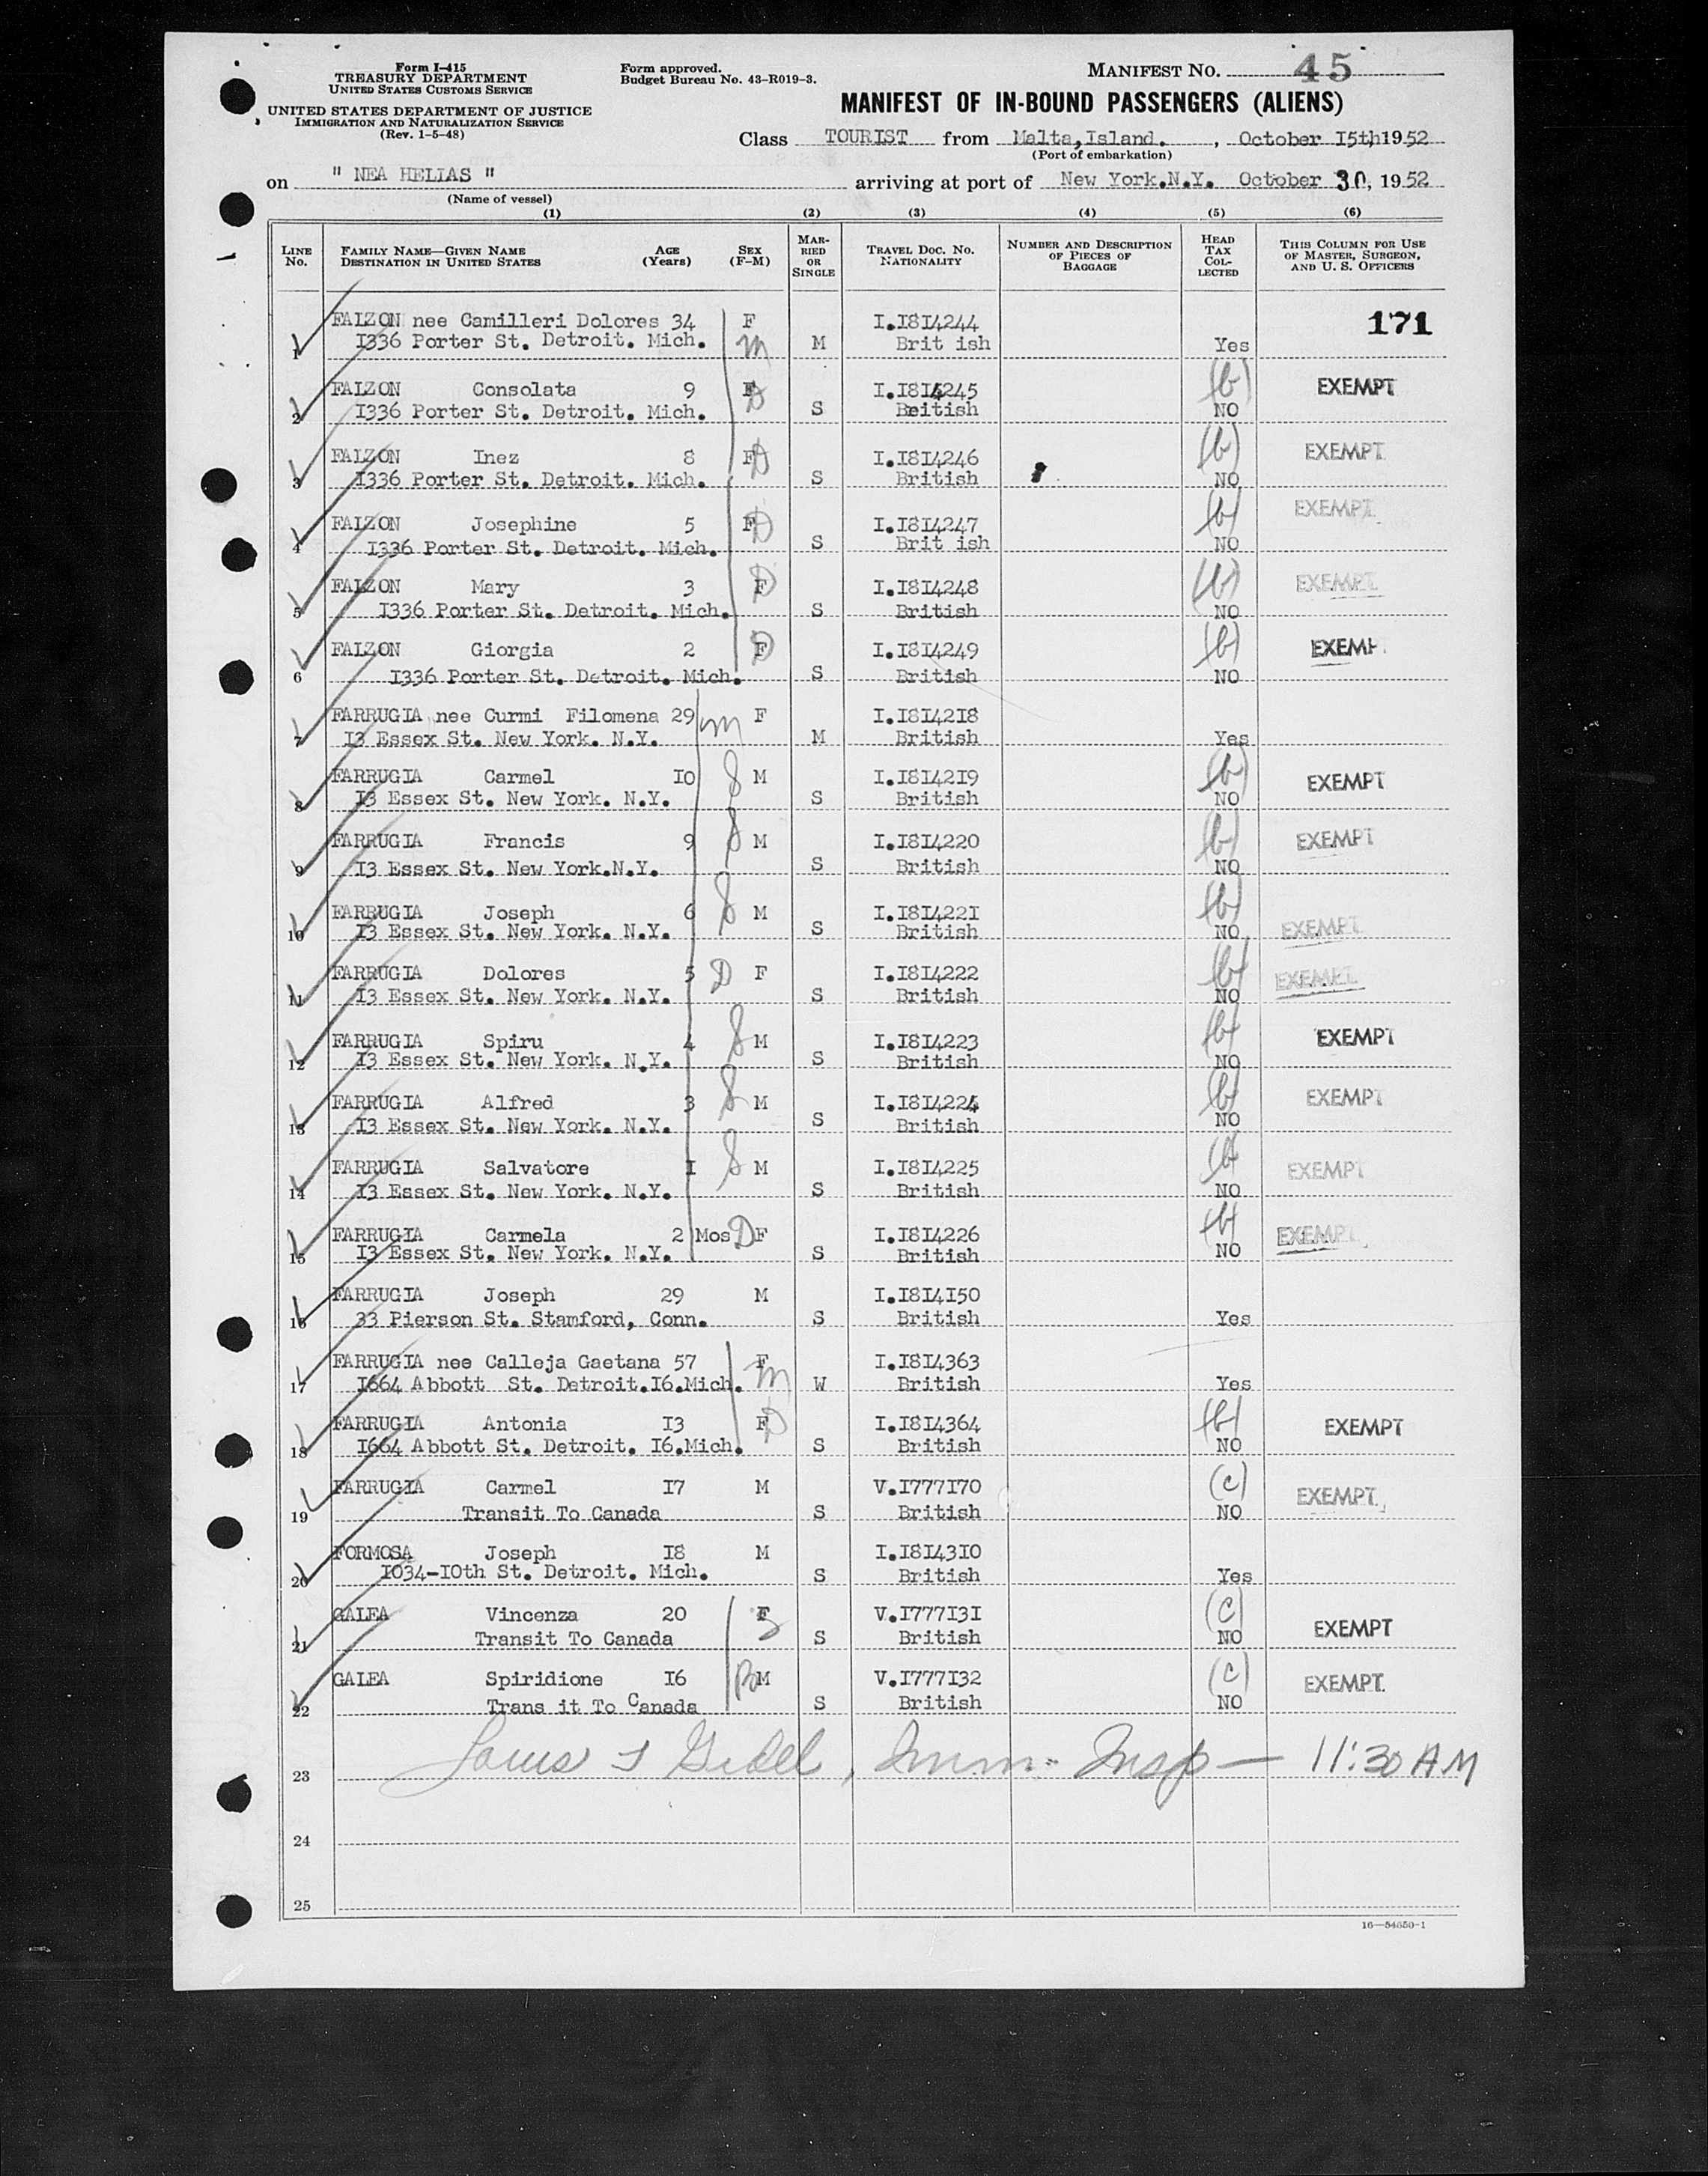 Form I-415
TREASURY DEPARTMENT
UNITED STATES CUSTOMS SERVICE
UNITED STATES DEPARTMENT OF JUSTICE
IMMIGRATION AND NATURALIZATION SERVICE
(Rev. 1-5-48)
Form approved.
Budget Bureau No. 43-R019-3.
MANIFEST NO. 45
MANIFEST OF IN-BOUND PASSENGERS (ALIENS)
Class TOURIST from Malta,Island. , October I5th,1952
(Port of embarkation)
on " NEA HELIAS " arriving at port of New York.N.Y. October 30, 1952
(Name of vessel)
(1) (2) (3) (4) (5) (6)
LINE No. FAMILY NAME—GIVEN NAME DESTINATION IN UNITED STATES AGE (Years) SEX (F-M) MARRIED OR SINGLE TRAVEL DOC. NO. NATIONALITY NUMBER AND DESCRIPTION OF PIECES OF BAGGAGE HEAD TAX COLLECTED THIS COLUMN FOR USE OF MASTER, SURGEON, AND U. S. OFFICERS
FALZON nee Camilleri Dolores 34 F I.I8I4244 171
1 I336 Porter St. Detroit. Mich. m M Brit ish Yes
FALZON Consolata 9 F D I.I8I4245 (b) EXEMPT
2 I336 Porter St. Detroit. Mich. S Beitish NO
FALZON Inez 8 F D I.I8I4246 (b) EXEMPT
3 I336 Porter St. Detroit. Mich. S British NO
FALZON Josephine 5 F D I.I8I4247 (b) EXEMPT
4 I336 Porter St. Detroit. Mich. S Brit ish NO
FALZON Mary 3 F D I.I8I4248 (b) EXEMPT
5 I336 Porter St. Detroit. Mich. S British NO
FALZON Giorgia 2 F D I.I8I4249 (b) EXEMP
6 I336 Porter St. Detroit. Mich. S British NO
FARRUGIA nee Curmi Filomena 29 m F I.I8I42I8
7 I3 Essex St. New York. N.Y. M British Yes
FARRUGIA Carmel IO S M I.I8I42I9 (b) EXEMPT
8 I3 Essex St. New York. N.Y. S British NO
FARRUGIA Francis 9 S M I.I8I4220 (b) EXEMPT
9 I3 Essex St. New York.N.Y. S British NO
FARRUGIA Joseph 6 S M I.I8I422I (b) EXEMPT
10 I3 Essex St. New York. N.Y. S British NO
FARRUGIA Dolores 5 D F I.I8I4222 (b) EXEMPT
11 I3 Essex St. New York. N.Y. S British NO
FARRUGIA Spiru 4 S M I.I8I4223 (b) EXEMPT
12 I3 Essex St. New York. N.Y. S British NO
FARRUGIA Alfred 3 S M I.I8I4224 (b) EXEMPT
13 I3 Essex St. New York. N.Y. S British NO
FARRUGIA Salvatore I S M I.I8I4225 (b) EXEMPT
14 I3 Essex St. New York. N.Y. S British NO
FARRUGIA Carmela 2 Mos D F I.I8I4226 (b) EXEMPT
15 I3 Essex St. New York. N.Y. S British NO
FARRUGIA Joseph 29 M I.I8I4I50
16 33 Pierson St. Stamford, Conn. S British Yes
FARRUGIA nee Calleja Gaetana 57 F m I.I8I4363
17 I664 Abbott St. Detroit.I6.Mich. W British Yes
FARRUGIA Antonia I3 F D I.I8I4364 (b) EXEMPT
18 I664 Abbott St. Detroit. I6.Mich. S British NO
FARRUGIA Carmel I7 M V.I777I70 (c) EXEMPT
19 Transit To Canada S British NO
FORMOSA Joseph I8 M I.I8I43IO
20 I034-IOth St. Detroit. Mich. S British Yes
GALEA Vincenza 20 F S V.I777I3I (c) EXEMPT
21 Transit To Canada S British NO
GALEA Spiridione I6 B M V.I777I32 (c) EXEMPT
22 Trans it To Canada S British NO
23 Imm. Insp — 11:30 AM
24
25
16—54650-1